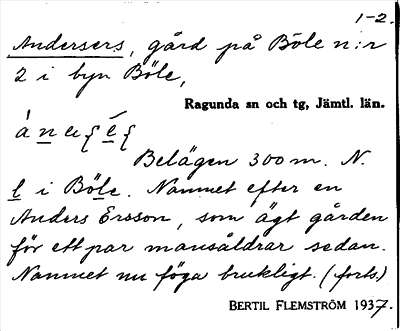 1-2.
Andersers, gård på Böle n:r
2 i byn Böle,
Ragunda sn och tg, Jämtl. län.
Belägen 300 m. N.
l i Böle. Namnet efter en
Anders Ersson, som ägt gården
för ett par mansåldrar sedan.
Namnet nu föga brukligt. (forts.)
BERTIL FLEMSTRÖM 1937.